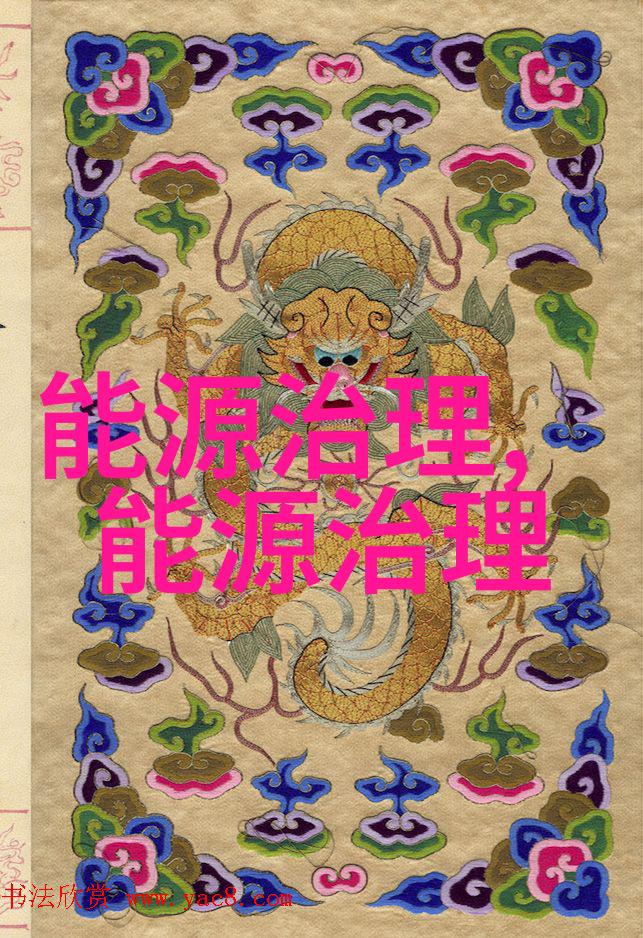 能源治理,
能源治理
书法欣赏 www.yac8.com